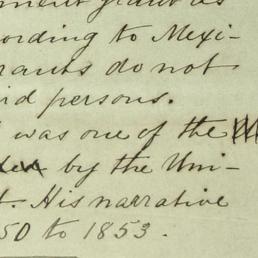 ment grant as
ording to Mexi-
rants do not
id persons.
was one of the
by the Uni-
t. His narrative
50 to 1853.